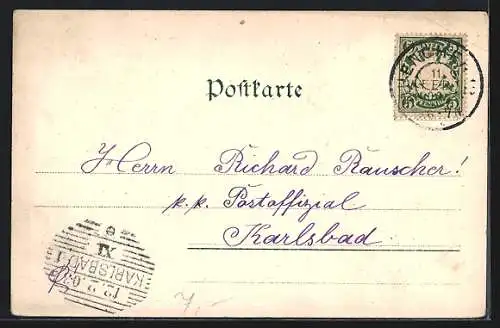 Postkarte
Herrn Richard Rauscher!
k. k. Postoffizial
Karlsbad
KARLSBAD 1
XI
11
7,-